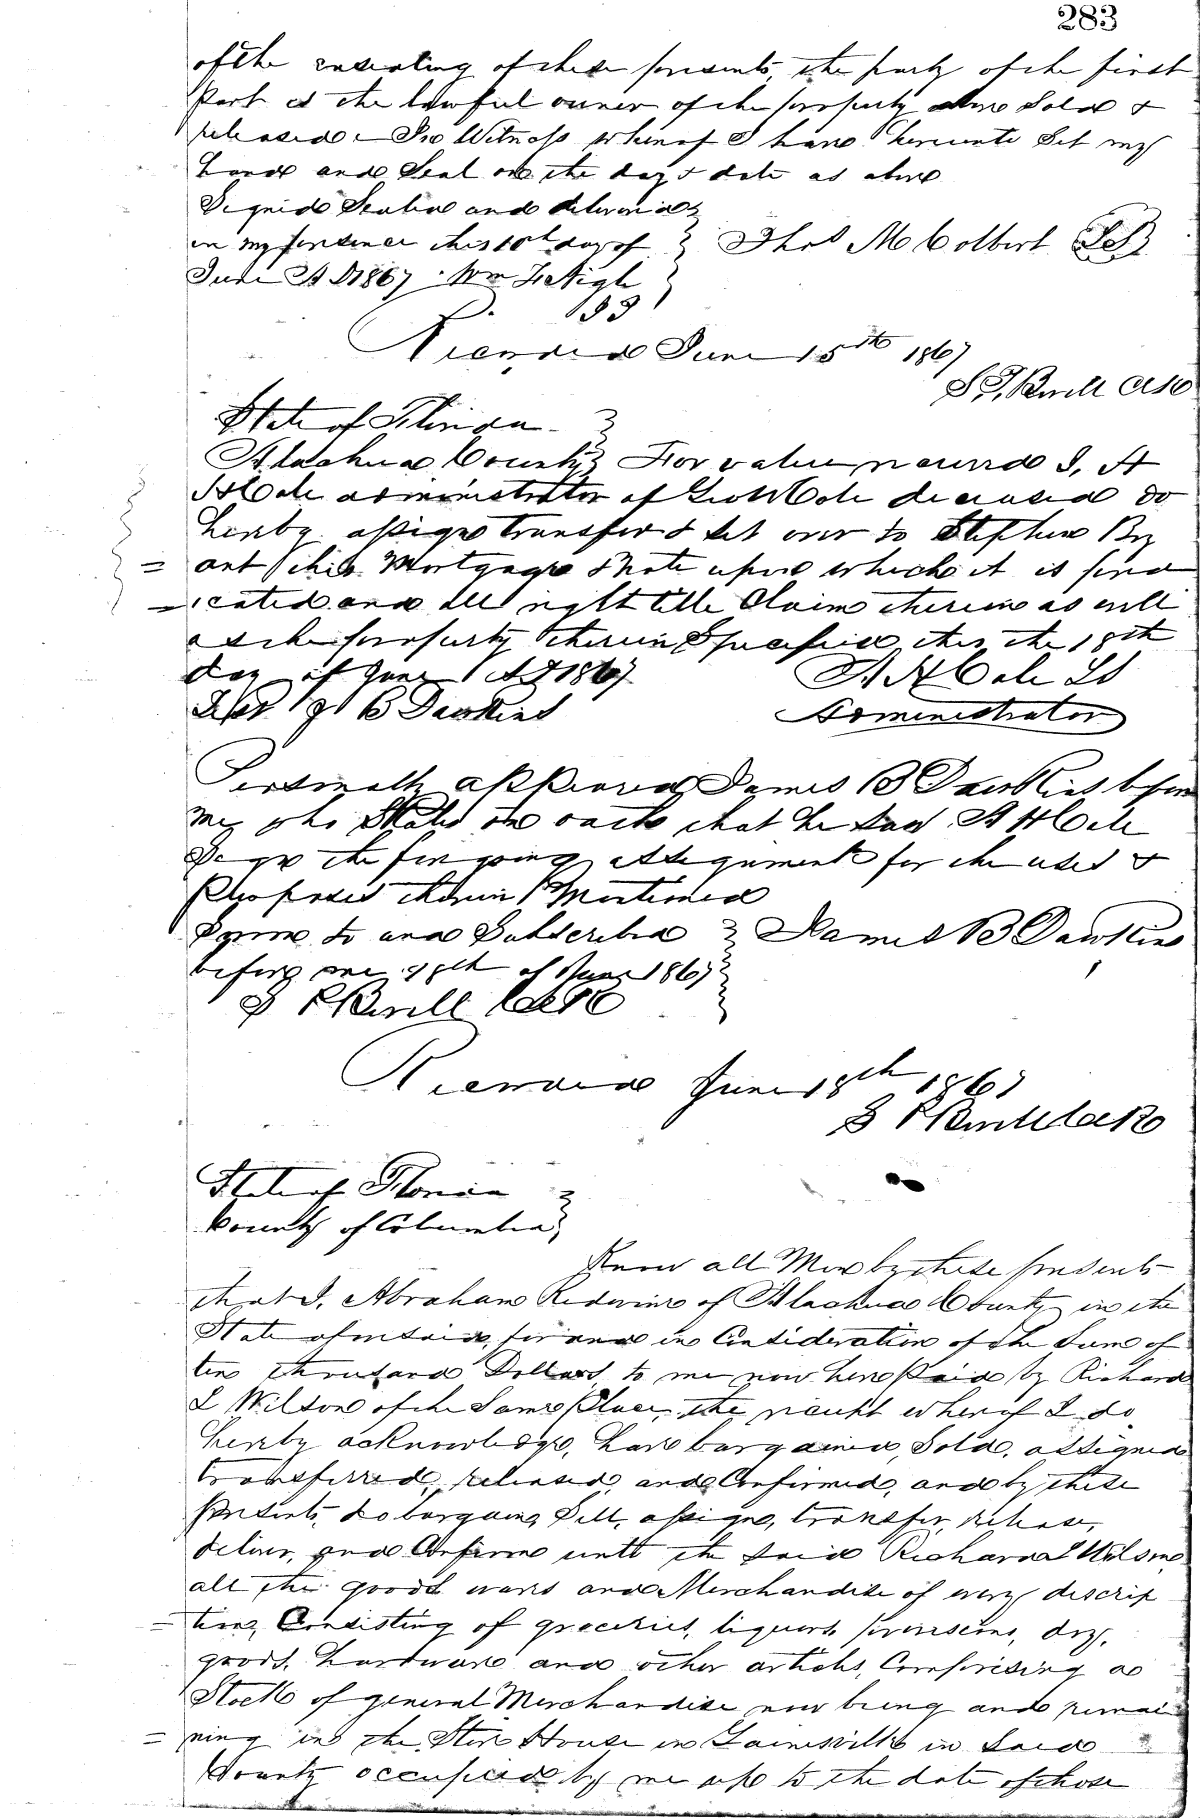 283
of the ensealing of these presents, the party of the first
Part is the lawful owner of the property above Sold &
released - In Witness whereof I have hereunto Set my
hand and Seal on the day & date as above
Signed Sealed and delivered
in my presence this 10th day of } Thos M Colbert LS
June A D 1867 . Wm
Recorded June 15th 1867
State of Florida
Alachua County For value received I, A
H Cole administrator of Cole deceased do
hereby assign transfer & set over to Stephen Bry
= ant this Mortgage & Note upon which it is pred
= icated and all right title Claim therein as well
as the property therein Specified this the 18th
day of June A D 1867 A H Cole LS
Test J B Dawkins Administrator
Personally appeared James B Dawkins before
me who States on oath that he saw A H Cole
Sign the foregoing assignment for the uses &
Purposes therein Mentioned
Sworn to and Subscribed } James B Dawkins
before me 18th of June 1867
Recorded June 18th 1867
State of Florida
County of Columbia
Know all Men by these presents
that I, Abraham Redwine of Alachua County in the
State aforesaid, for and in Consideration of the Sum of
ten thousand Dollars, to me now here Paid by Richard
L Wilson of the Same Place, the receipt whereof I do
hereby acknowledge, have bargained, Sold, assigned
transferred, released, and Confirmed, and by these
presents, do bargain, Sell, assign, transfer, release,
deliver, and Confirm unto the said Richard L Wilson,
all the goods wares and Merchandise of every descrip
= tion, Consisting of groceries, liquors, provisions, dry,
goods, hardware and other articles, Comprising a
Stock of general Merchandise now being and remai
= ning in the Store House in Gainesville in said
County occupied by me up to the date of these